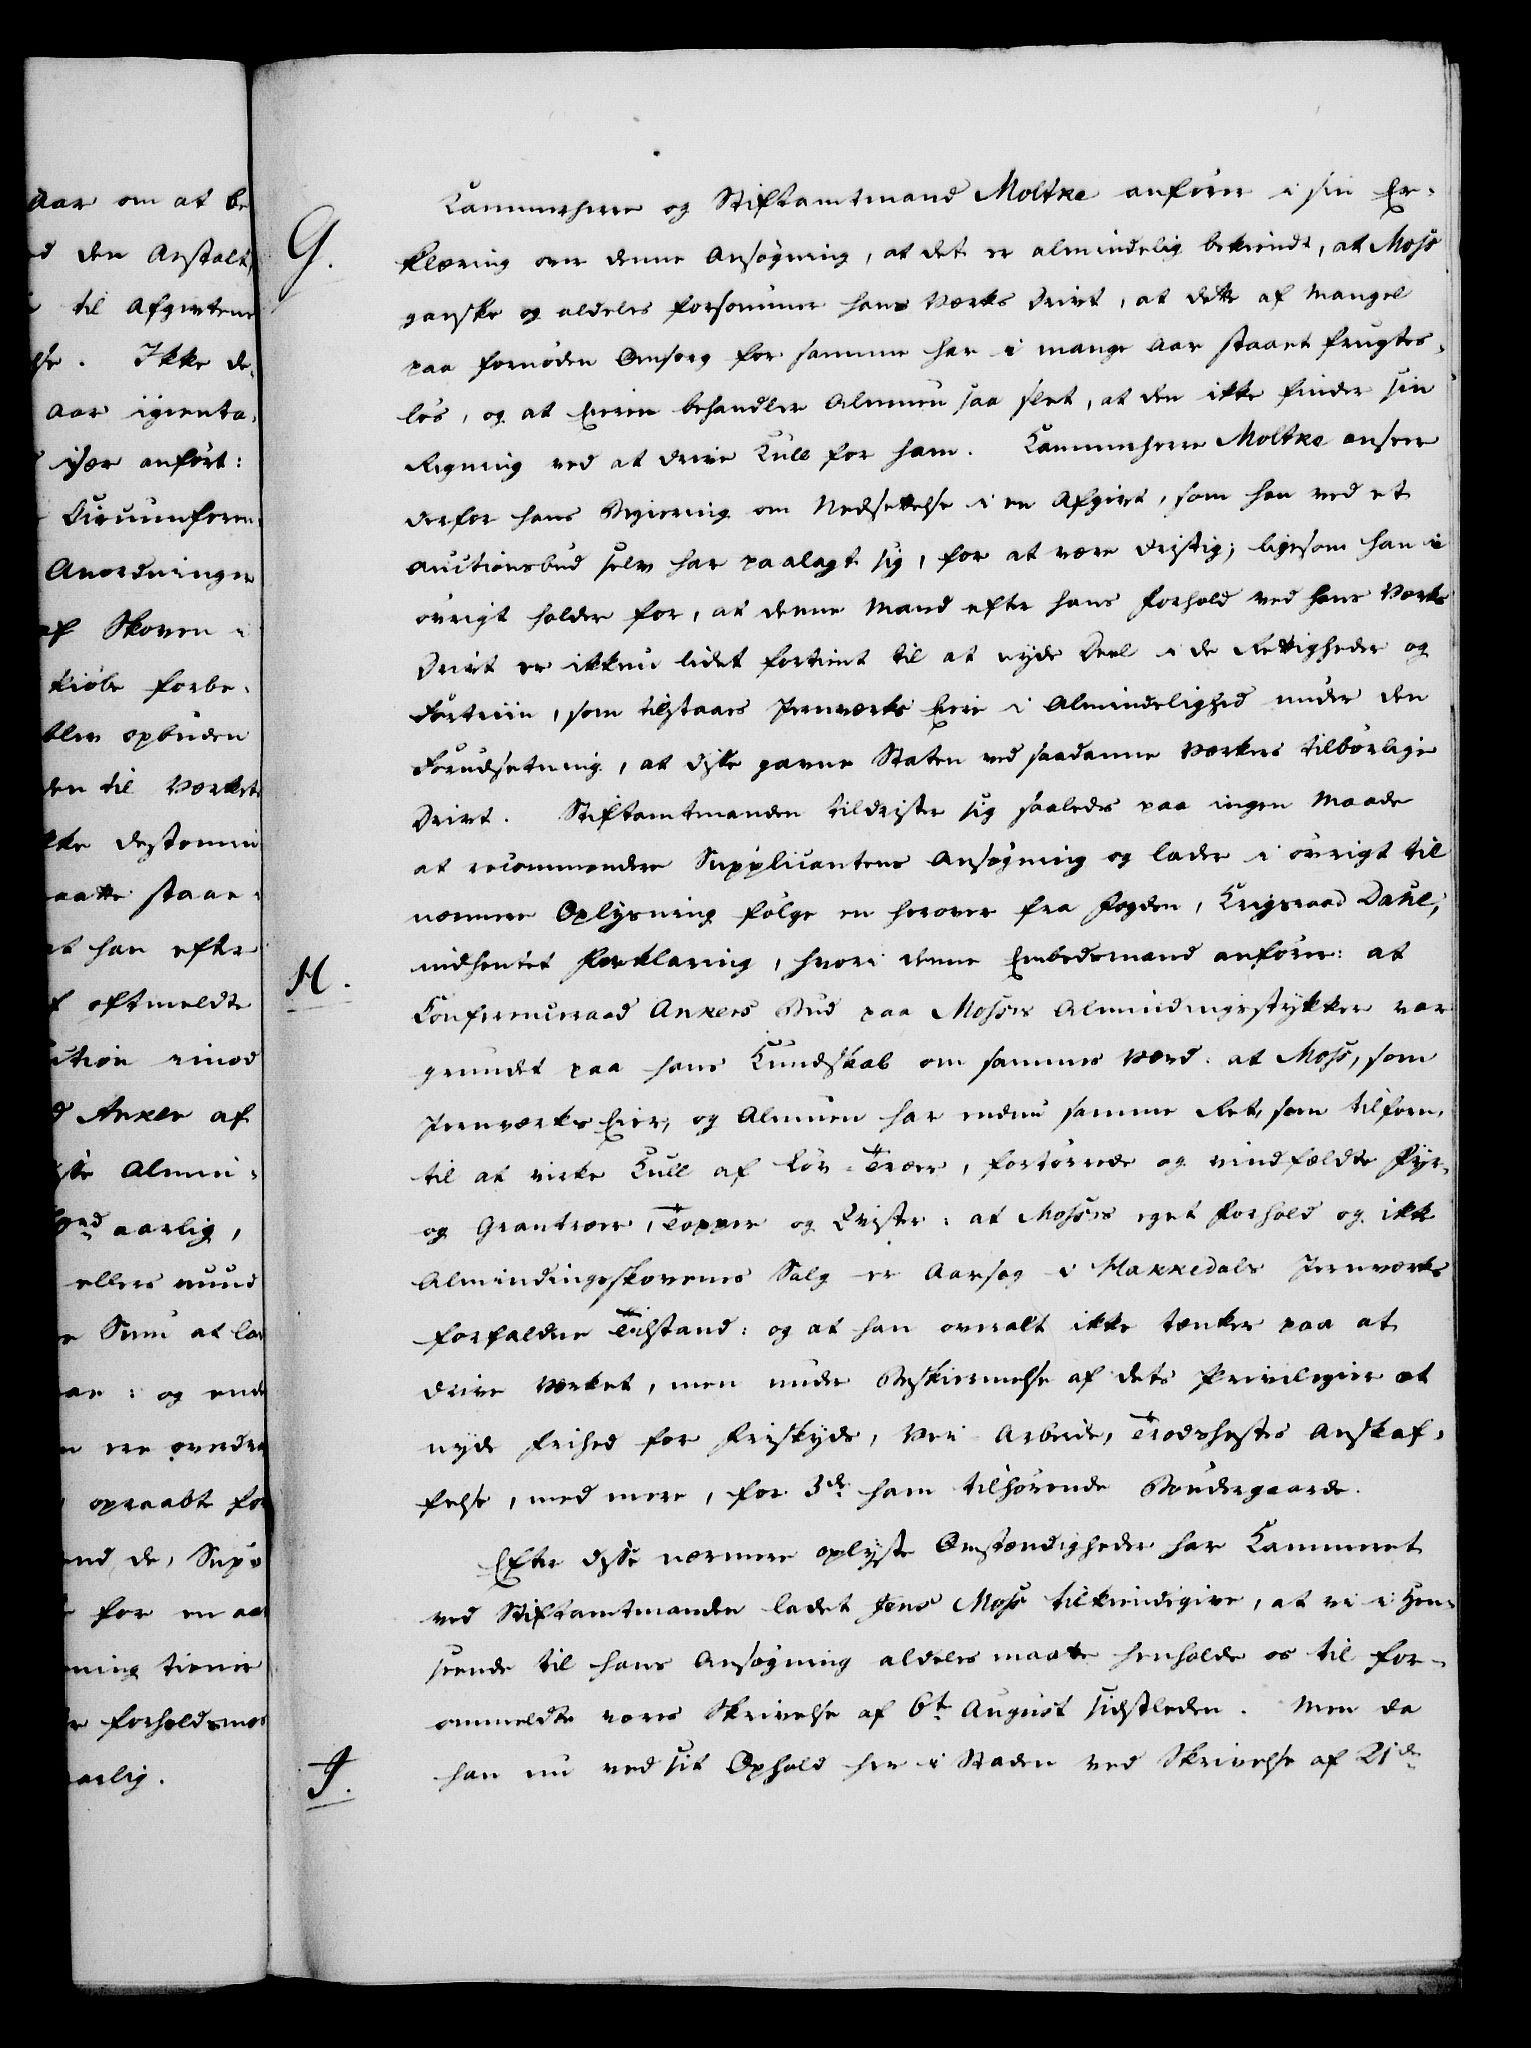 Aar om at be
ed den Anstalt,
til Afgivtens
lse. Ikke de-
Aar igienta-
især anført:
Circumferen-
Anordninger
af Skoven i
kiøbe forbe-
blev opbuden
den til Værkets
kke destomin-
aatte staae
at han efter
f oftmeldte
uction imod
d Anker af
sse Almin-
aarlig,
ellers mund
e Sum at lov
ae: og ende
n ere ovedra
opraabte for
end de, Supp
for en aar
ning tiene
e forholdsmæs
aarlig.
G. Kammerherre og Stiftamtmand Moltke anfører i sin Er-
klæring over denne Ansøgning, at det er almindelig bekiendt, at Moss
ganske og aldeles forsømmer hans Værks Drivt, at dette af Mangel
paa fornøden Omsorg for samme har i mange Aar staaet frugtes-
løs, og at Eieren behandler Almuen saa slet, at den ikke finder sin
Regning ved at drive Kull for ham. Kammerherre Moltke anseer
derfor hans Begiering om Nedsettelse i en Afgivt, som han ved et
Auctionsbud selv har paalagt sig, for at være dristig; ligesom han i
øvrigt holder for, at denne Mand efter hans Forhold ved hans Værks
Drivt er ikkun lidet fortient til at nyde Deel i de Rettigheder og
Fortrin, som tilstaaes Jernværks Eiere i Almindelighed under den
Forudsetning, at disse gavne Staten ved saadanne Værkers tilbørlige
Drivt. Stiftamtmanden tildrister sig saaledes paa ingen Maade
at recommendere Supplicantens Ansøgning og lader i øvrigt til
nærmere Oplysning følge en herover fra Fogden, Krigsraad Dahl,
H. indhentet Forklaring, hvori denne Embedsmand anfører: at
Conferenceraad Ankers Bud paa Mosses Almindingsstykker var
grundet paa hans Kundskab om sammes Værd: at Moss, som
Jernværks Eier, og Almuen har endnu samme Ret, som tilforn,
til at virke Kull af Løv-Træer, fortørrede og vindfældte Fyr-
og Grantræer, Topper og Qvister: at Mosses eget Forhold og ikke
Almindingsskovenes Salg er Aarsag i Hakkedals Jernværks
forfaldne Tilstand: og at han overalt ikke tænker paa at
drive Værket, men under Beskiermelse af dets Privilegier at
nyde Frihed for Friskyds, Vei-Arbeide, Trodshestes Anskaf-
felse, med mere, for 3de ham tilhørende Bøndergaarde.
Efter disse nærmere oplyste Omstændigheder har Kammeret
ved Stiftamtmanden ladet Jens Moss tilkiendegive, at vi i Hen-
seende til hans Ansøgning aldeles maatte henholde os til for-
ommeldte vores Skrivelse af 6t August sidstleden. Men da
J. han nu ved sit Ophold her i Staden ved Skrivelse af 21de